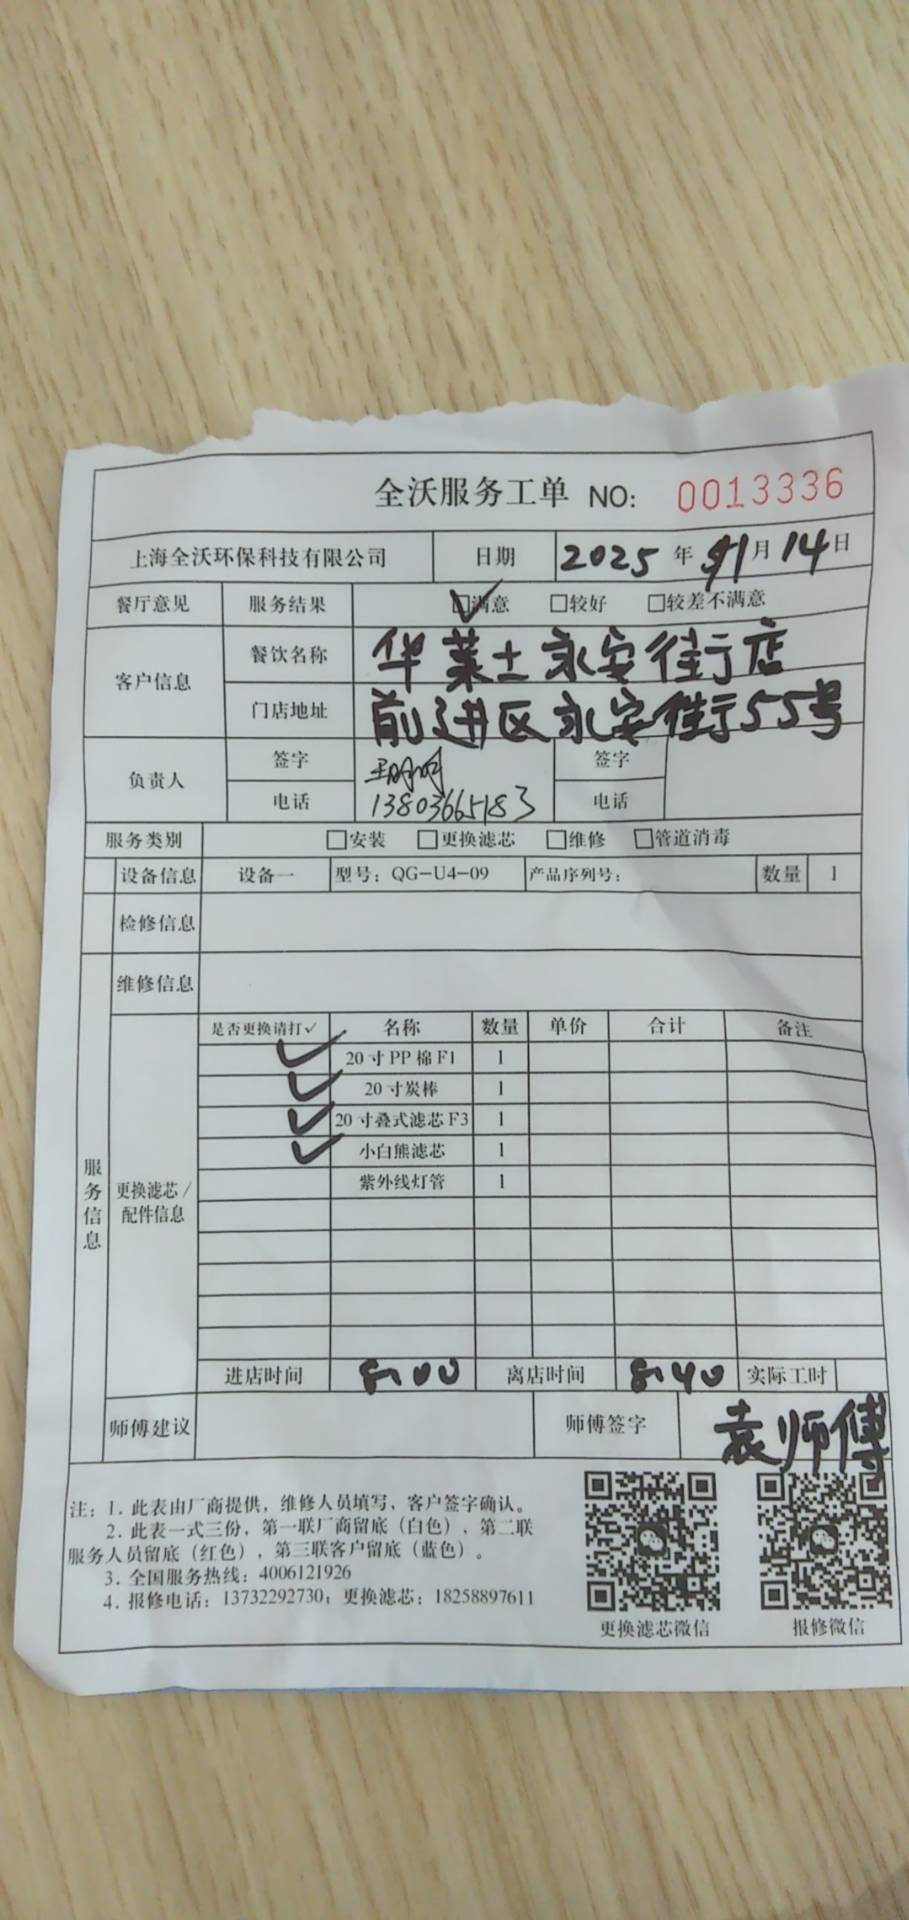 全沃服务工单 NO: 0013336
上海全沃环保科技有限公司 日期 2025年11月14日
餐厅意见 服务结果 ☑满意 □较好 □较差不满意
客户信息 餐饮名称 华莱士永安街店
门店地址 前进区永安街55号
负责人 签字 签字
电话 13803665183 电话
服务类别 □安装 □更换滤芯 □维修 □管道消毒
设备信息 设备一 型号：QG-U4-09 产品序列号： 数量 1
检修信息
维修信息
服务信息
更换滤芯/配件信息
是否更换请打✓ 名称 数量 单价 合计 备注
✓ 20寸PP棉F1 1
✓ 20寸炭棒 1
✓ 20寸叠式滤芯F3 1
✓ 小白熊滤芯 1
紫外线灯管 1
进店时间 8:00 离店时间 8:40 实际工时
师傅建议 师傅签字 袁师傅
注：1. 此表由厂商提供，维修人员填写，客户签字确认。
2. 此表一式三份，第一联厂商留底（白色），第二联
服务人员留底（红色），第三联客户留底（蓝色）。
3. 全国服务热线：4006121926
4. 报修电话：13732292730；更换滤芯：18258897611
更换滤芯微信 报修微信